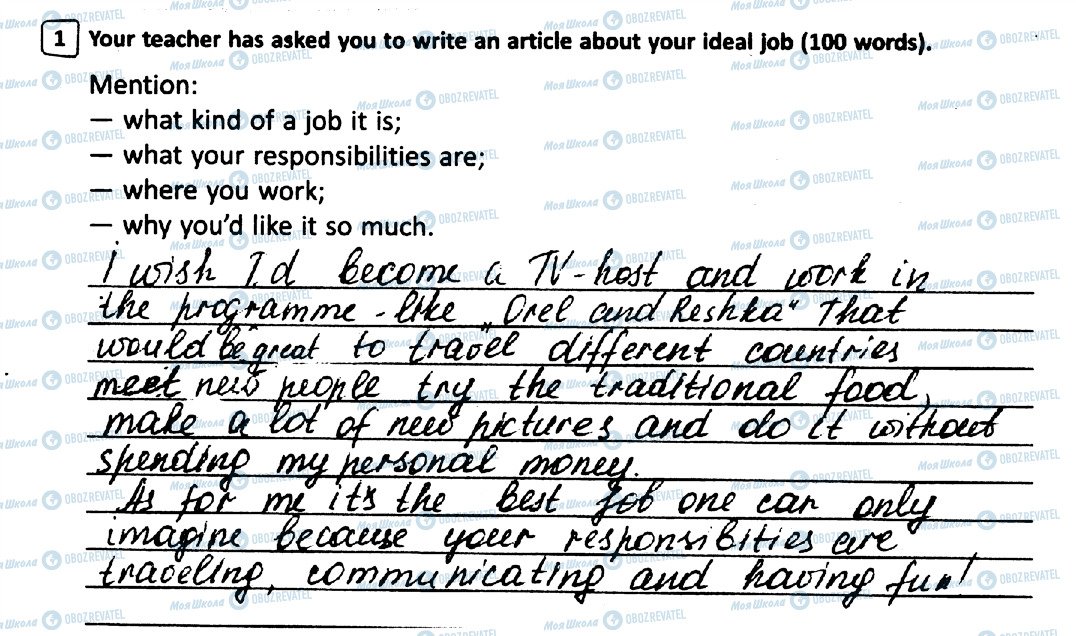 1 Your teacher has asked you to write an article about your ideal job (100 words).
Mention:
— what kind of a job it is;
— what your responsibilities are;
— where you work;
— why you'd like it so much.
I wish I.d become a TV-host and work in
the programme -like „Orel and Reshka“ That
would be great to travel different countries
meet new people try the traditional food,
make a lot of new pictures and do it without
spending my personal money.
As for me it's the best job one can only
imagine because your responsibities are
traveling, communicating and having fun!
МояШкола OBOZREVATEL